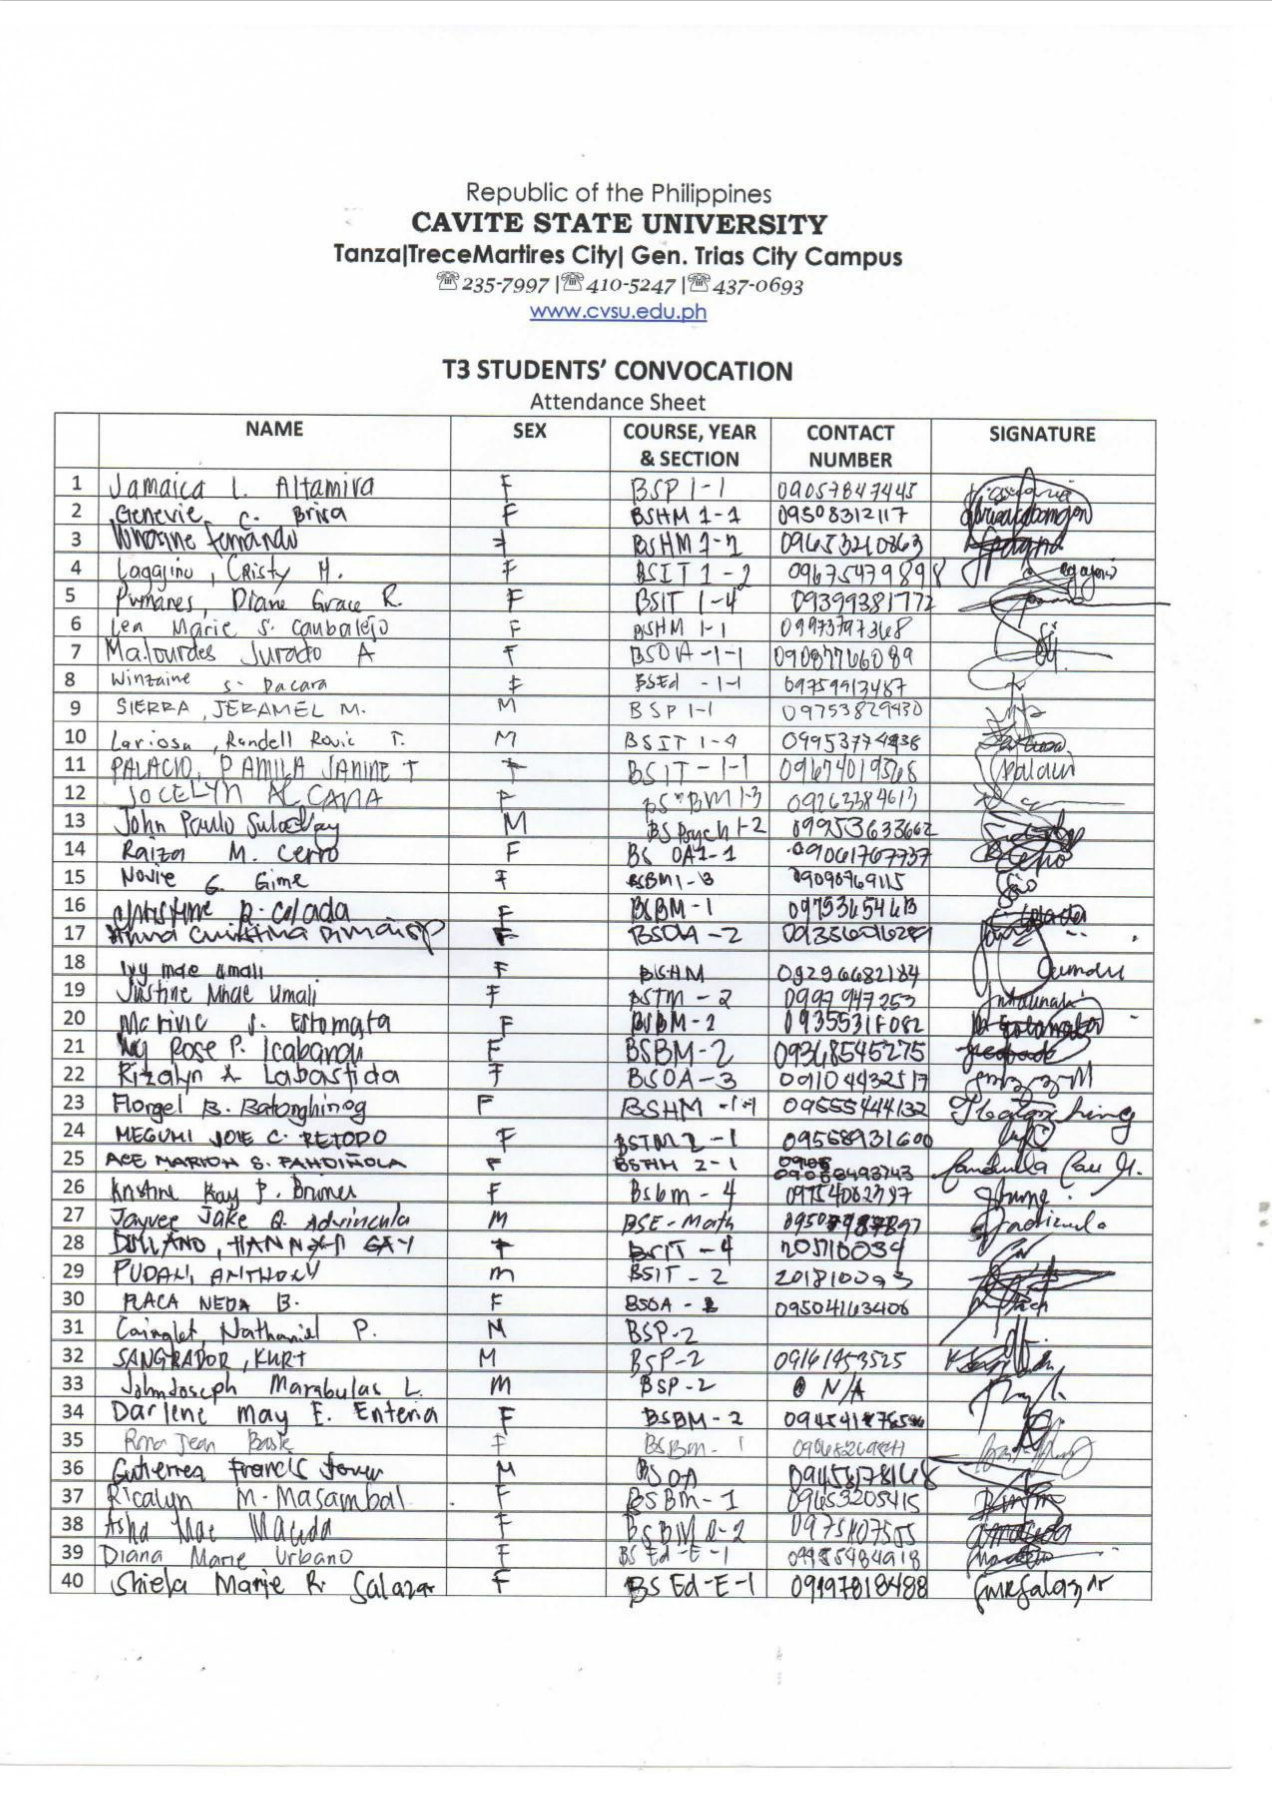 Republic of the Philippines
CAVITE STATE UNIVERSITY
Tanza|TreceMartires City| Gen. Trias City Campus
☏235-7997 |☏410-5247 |☏437-0693
www.cvsu.edu.ph
T3 STUDENTS' CONVOCATION
Attendance Sheet
NAME SEX COURSE, YEAR & SECTION CONTACT NUMBER SIGNATURE
1 Jamaica L. Altamira F BSP 1-1 09057847445
2 Genevie C. Brisa F BSHM 1-1 09508312117
3 Fernando F BSHM 1-1 09653210863
4 Lagajino, Cristy M. F BSIT 1-2 09675479898
5 Pumares, Diane Grace R. F BSIT 1-4 09399381772
6 Lea Marie S. Caubalejo F BSHM 1-1 09973797368
7 Ma.lourdes Jurado A F BSOA-1-1 09087766089
8 Winzaine S. Dacara F BSEd -1-1 09759913487
9 SIERRA, JERAMEL M. M BSP 1-1 09753829430
10 Lariosa, Randell Rovic T. M BSIT 1-4
11 PALACIO, PAMILA JANINE T F BSIT-1-1 09674019568
12 JOCELYN ALCANA F BSBM 1-3 09263384613
13 John Paulo M BS Psych 1-2 09953633662
14 Raiza M. Cerro F BS OA 1-1 09061767737
15 Novie G. Gime F BSBM1-B 09090969115
16 Christine R. Celada F BSBM-1 09753654613
17 F BSOA-2
18 Ivy mae Umali F BSHM 09296682184
19 Justine Mhae Umali F BSTM-2 0997947253
20 Marivic S. Estomata F BSBM-2
21 Ivy Rose P. Icabandi F BSBM-2 09368545275
22 Rizalyn A Labastida F BSOA-3 09104432517
23 Florgel B. Batonghinog F BSHM -1-1 09555444132
24 MEGUMI JOIE C. RETODO F BSTM 2-1 09568931600
25 ACE MARION S. PANDIÑOLA F BSHM 2-1 09060493743
26 Kristine Kay P. Brunes F Bsbm-4 09754062797
27 Jayvee Jake Q. Advincula M BSE-Math
28 HANNAH GAY F BSIT-4 201710039
29 PUDAN, ANTHONY m BSIT-2 201810093
30 PLACA NEDA B. F BSOA - 09504163406
31 Cainglet, Nathaniel P. M BSP-2
32 SANGRADOR, KURT M BSP-2 09161953525
33 Johndoseph Marabulas L. M BSP-2 N/A
34 Darlene May E. Enteria F BSBM-2
35 Jean Basle F BSBm- 1
36 Gutierrea Francis M BSOA 09458178168
37 Ricalyn M. Masambal F BSBm-1 09653205415
38 Asha Mae Mauda F BSBM 2-2 0975807555
39 Diana Marie Urbano F BS Ed-E-1 09955484918
40 Shiela Marie R. Salazar F BS Ed-E-1 09197818488 SMRSalazar